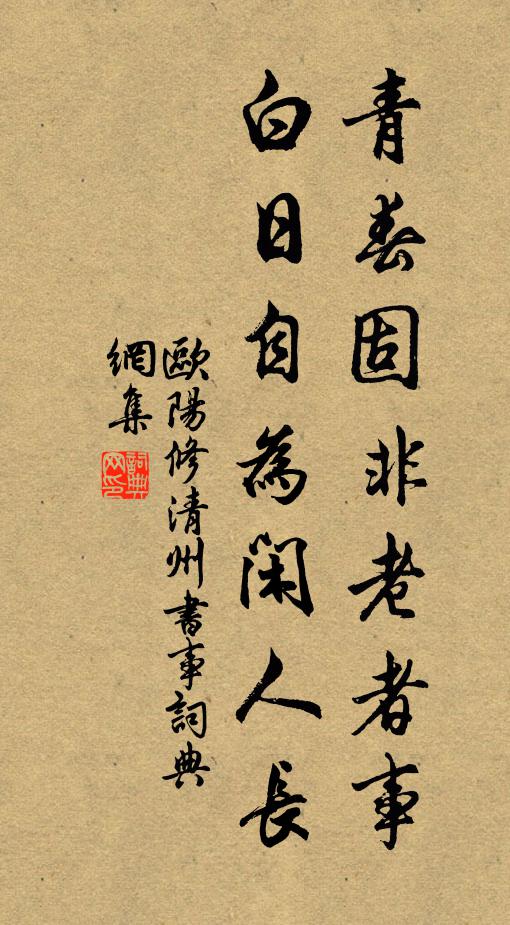 青春固非老者事
白日自為閑人長
歐陽修清州書事詞典
網集
詞典
网印